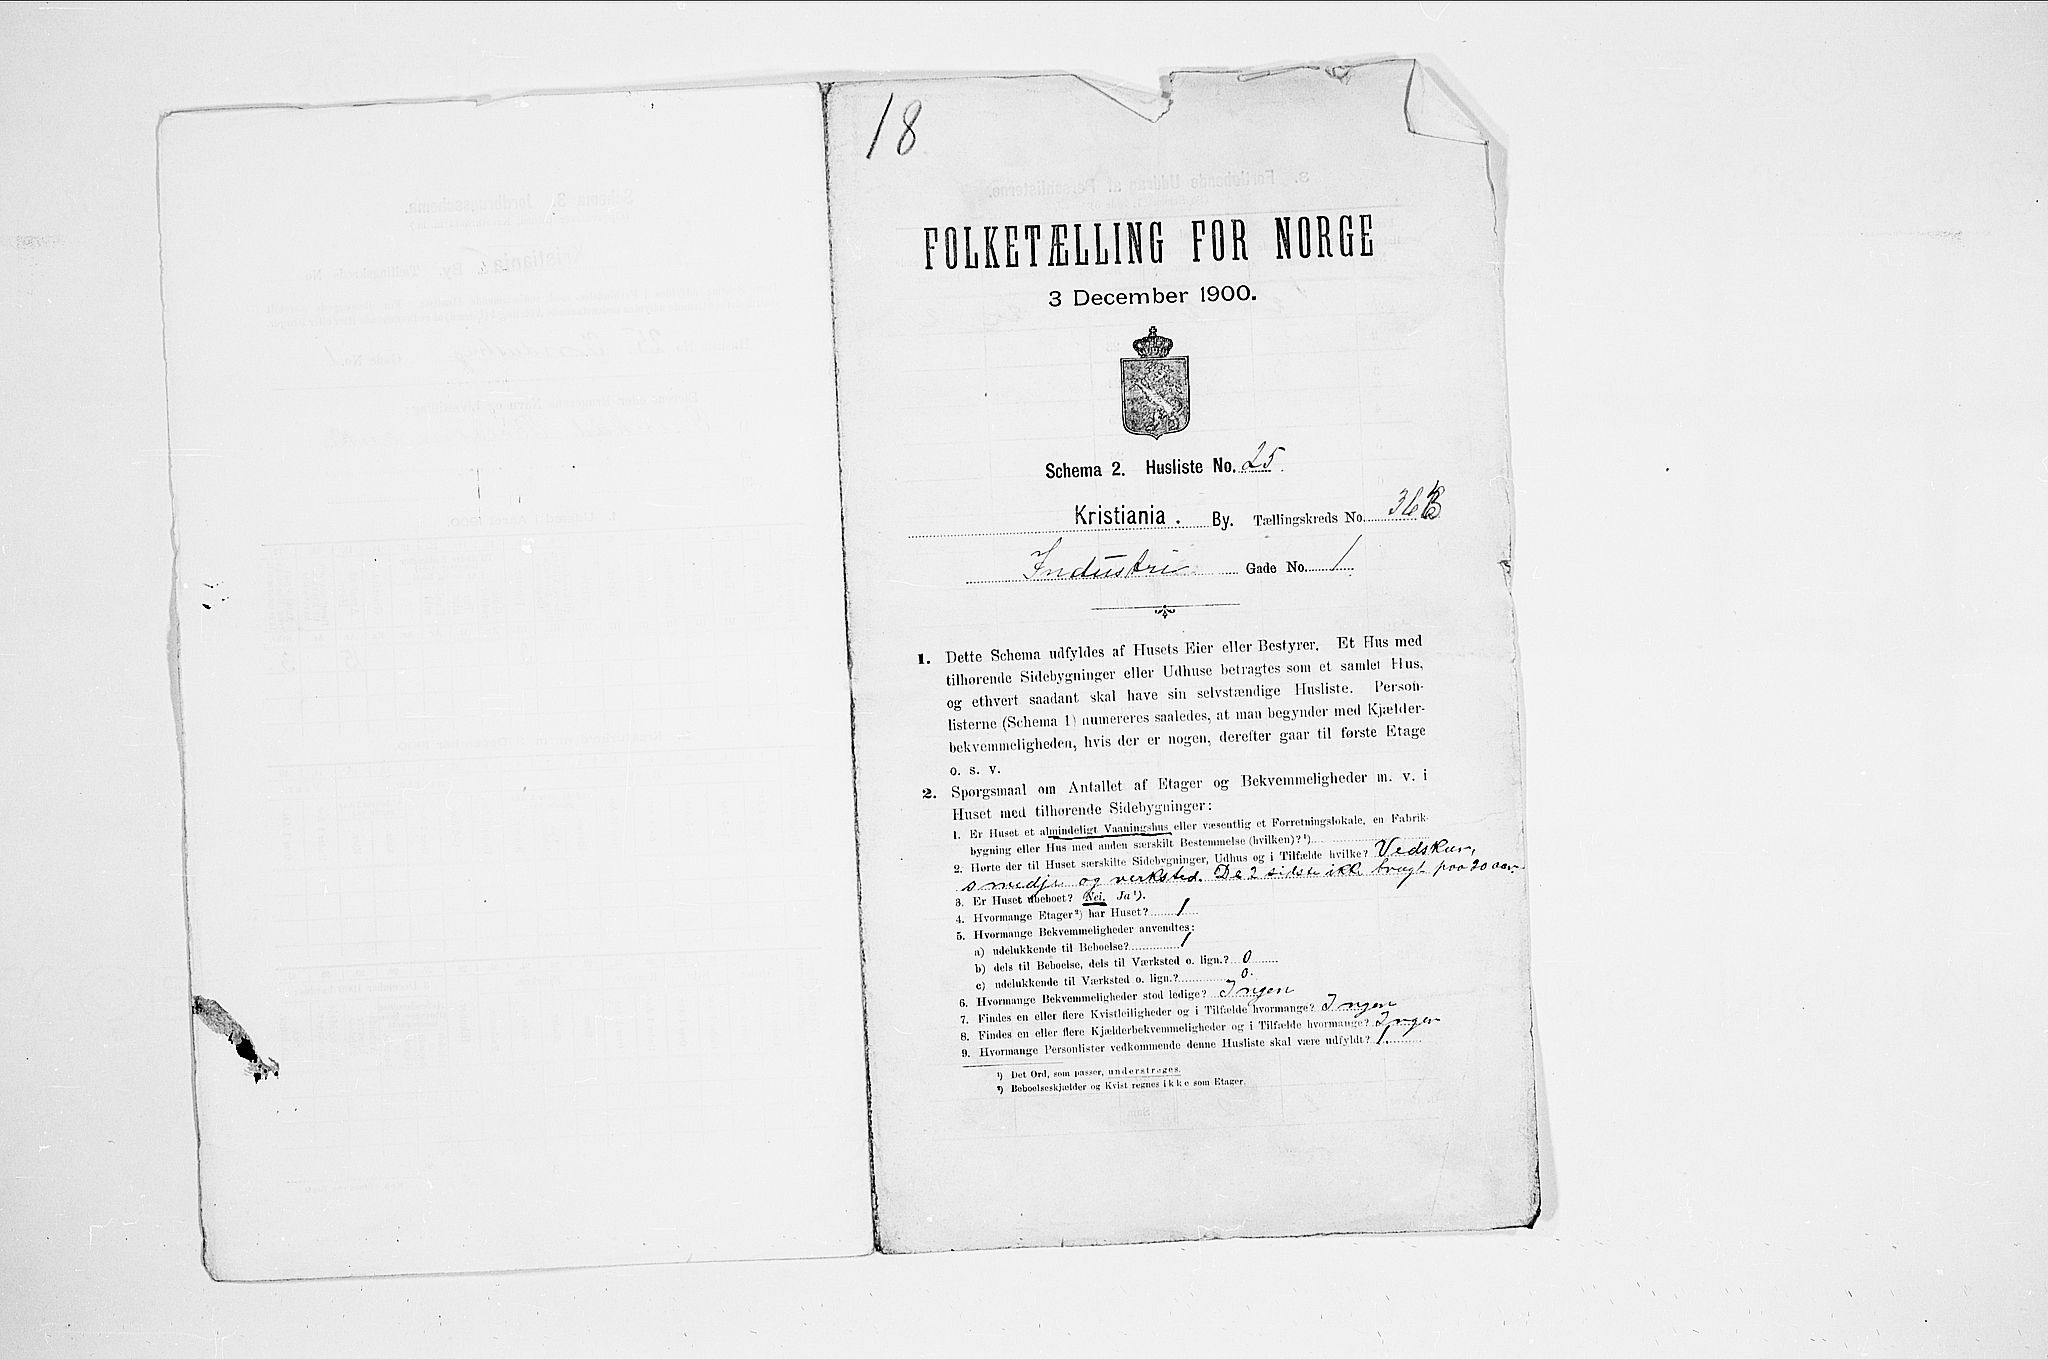 18
FOLKETÆLLING FOR NORGE
3 December 1900.
Schema 2. Husliste No. 25.
Kristiania. By. Tællingskreds No.
Industri Gade No. 1
1. Dette Schema udfyldes af Husets Eier eller Bestyrer. Et Hus med
tilhørende Sidebygninger eller Udhuse betragtes som et samlet Hus,
og ethvert saadant skal have sin selvstændige Husliste. Person-
listerne (Schema 1) numereres saaledes, at man begynder med Kjælder-
bekvemmeligheden, hvis der er nogen, derefter gaar til første Etage
o. s. v.
2. Spørgsmaal om Antallet af Etager og Bekvemmeligheder m. v. i
Huset med tilhørende Sidebygninger:
1. Er Huset et almindeligt Vaaningshus eller væsentlig et Forretningslokale, en Fabrik-
bygning eller Hus med anden særskilt Bestemmelse (hvilken)?¹)
2. Hørte der til Huset særskilte Sidebygninger, Udhus og i Tilfælde hvilke? Vedskur,
smedje og verksted. De 2 sidste ikke brugt paa 20 aar.
3. Er Huset ubeboet? Nei. Ja¹).
4. Hvormange Etager²) har Huset? 1
5. Hvormange Bekvemmeligheder anvendtes:
a) udelukkende til Beboelse? 1
b) dels til Beboelse, dels til Værksted o. lign.? 0
c) udelukkende til Værksted o. lign.? 0.
6. Hvormange Bekvemmeligheder stod ledige? Ingen
7. Findes en eller flere Kvistleiligheder og i Tilfælde hvormange? Ingen
8. Findes en eller flere Kjælderbekvemmeligheder og i Tilfælde hvormange? Ingen
9. Hvormange Personlister vedkommende denne Husliste skal være udfyldt? 1.
¹) Det Ord, som passer, understreges.
²) Beboelseskjælder og Kvist regnes ikke som Etager.